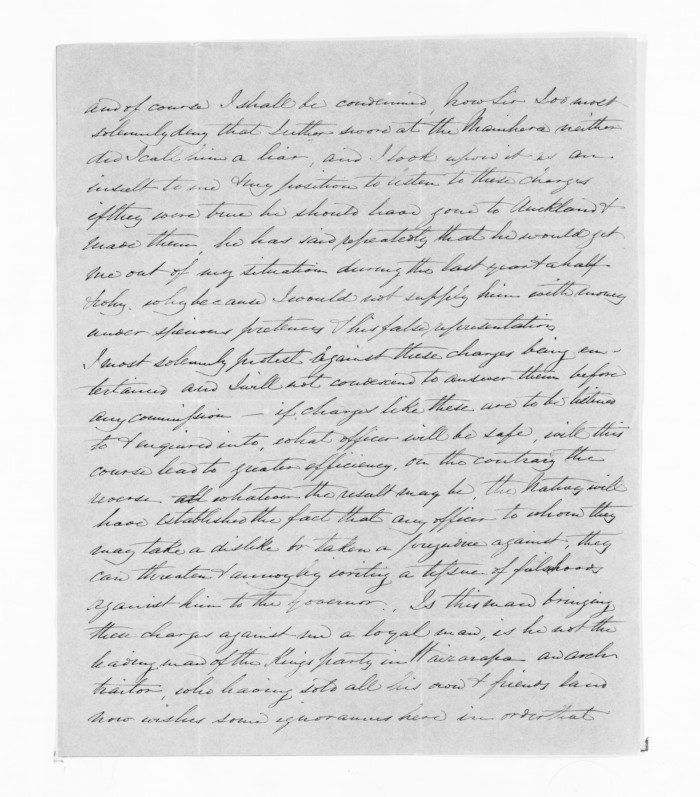 and of course I shall be condemned, Now Sir I do most
solemnly deny that I either swore at the Manihera neither
did I call him a liar, and I look upon it as an
insult to me & my position to listen to these charges
if they were true he should have gone to Auckland &
made them, he has said repeatedly that he would get
me out of my situation during the last year & a half
& why. why because I would not supply him with money
under specious pretences & his false representation
I most solemnly protest against these charges being en-
tertained and I will not condescend to answer them before
any commission — if charges like these are to be listened
to & enquired into, what officer will be safe, will this
course lead to greater efficiency. on the contrary the
reverse whatever the result may be, the Natives will
have established the fact that any officer to whom they
may take a dislike or taken a prejudice against, they
can threaten & annoy by writing a tissue of falsehoods
against him to the Governor. Is this man bringing
these charges against me a loyal man, is he not the
leading man of the Kings party in Wairarapa an arch
traitor, who having sold all his own & friends land
now wishes some here in order that